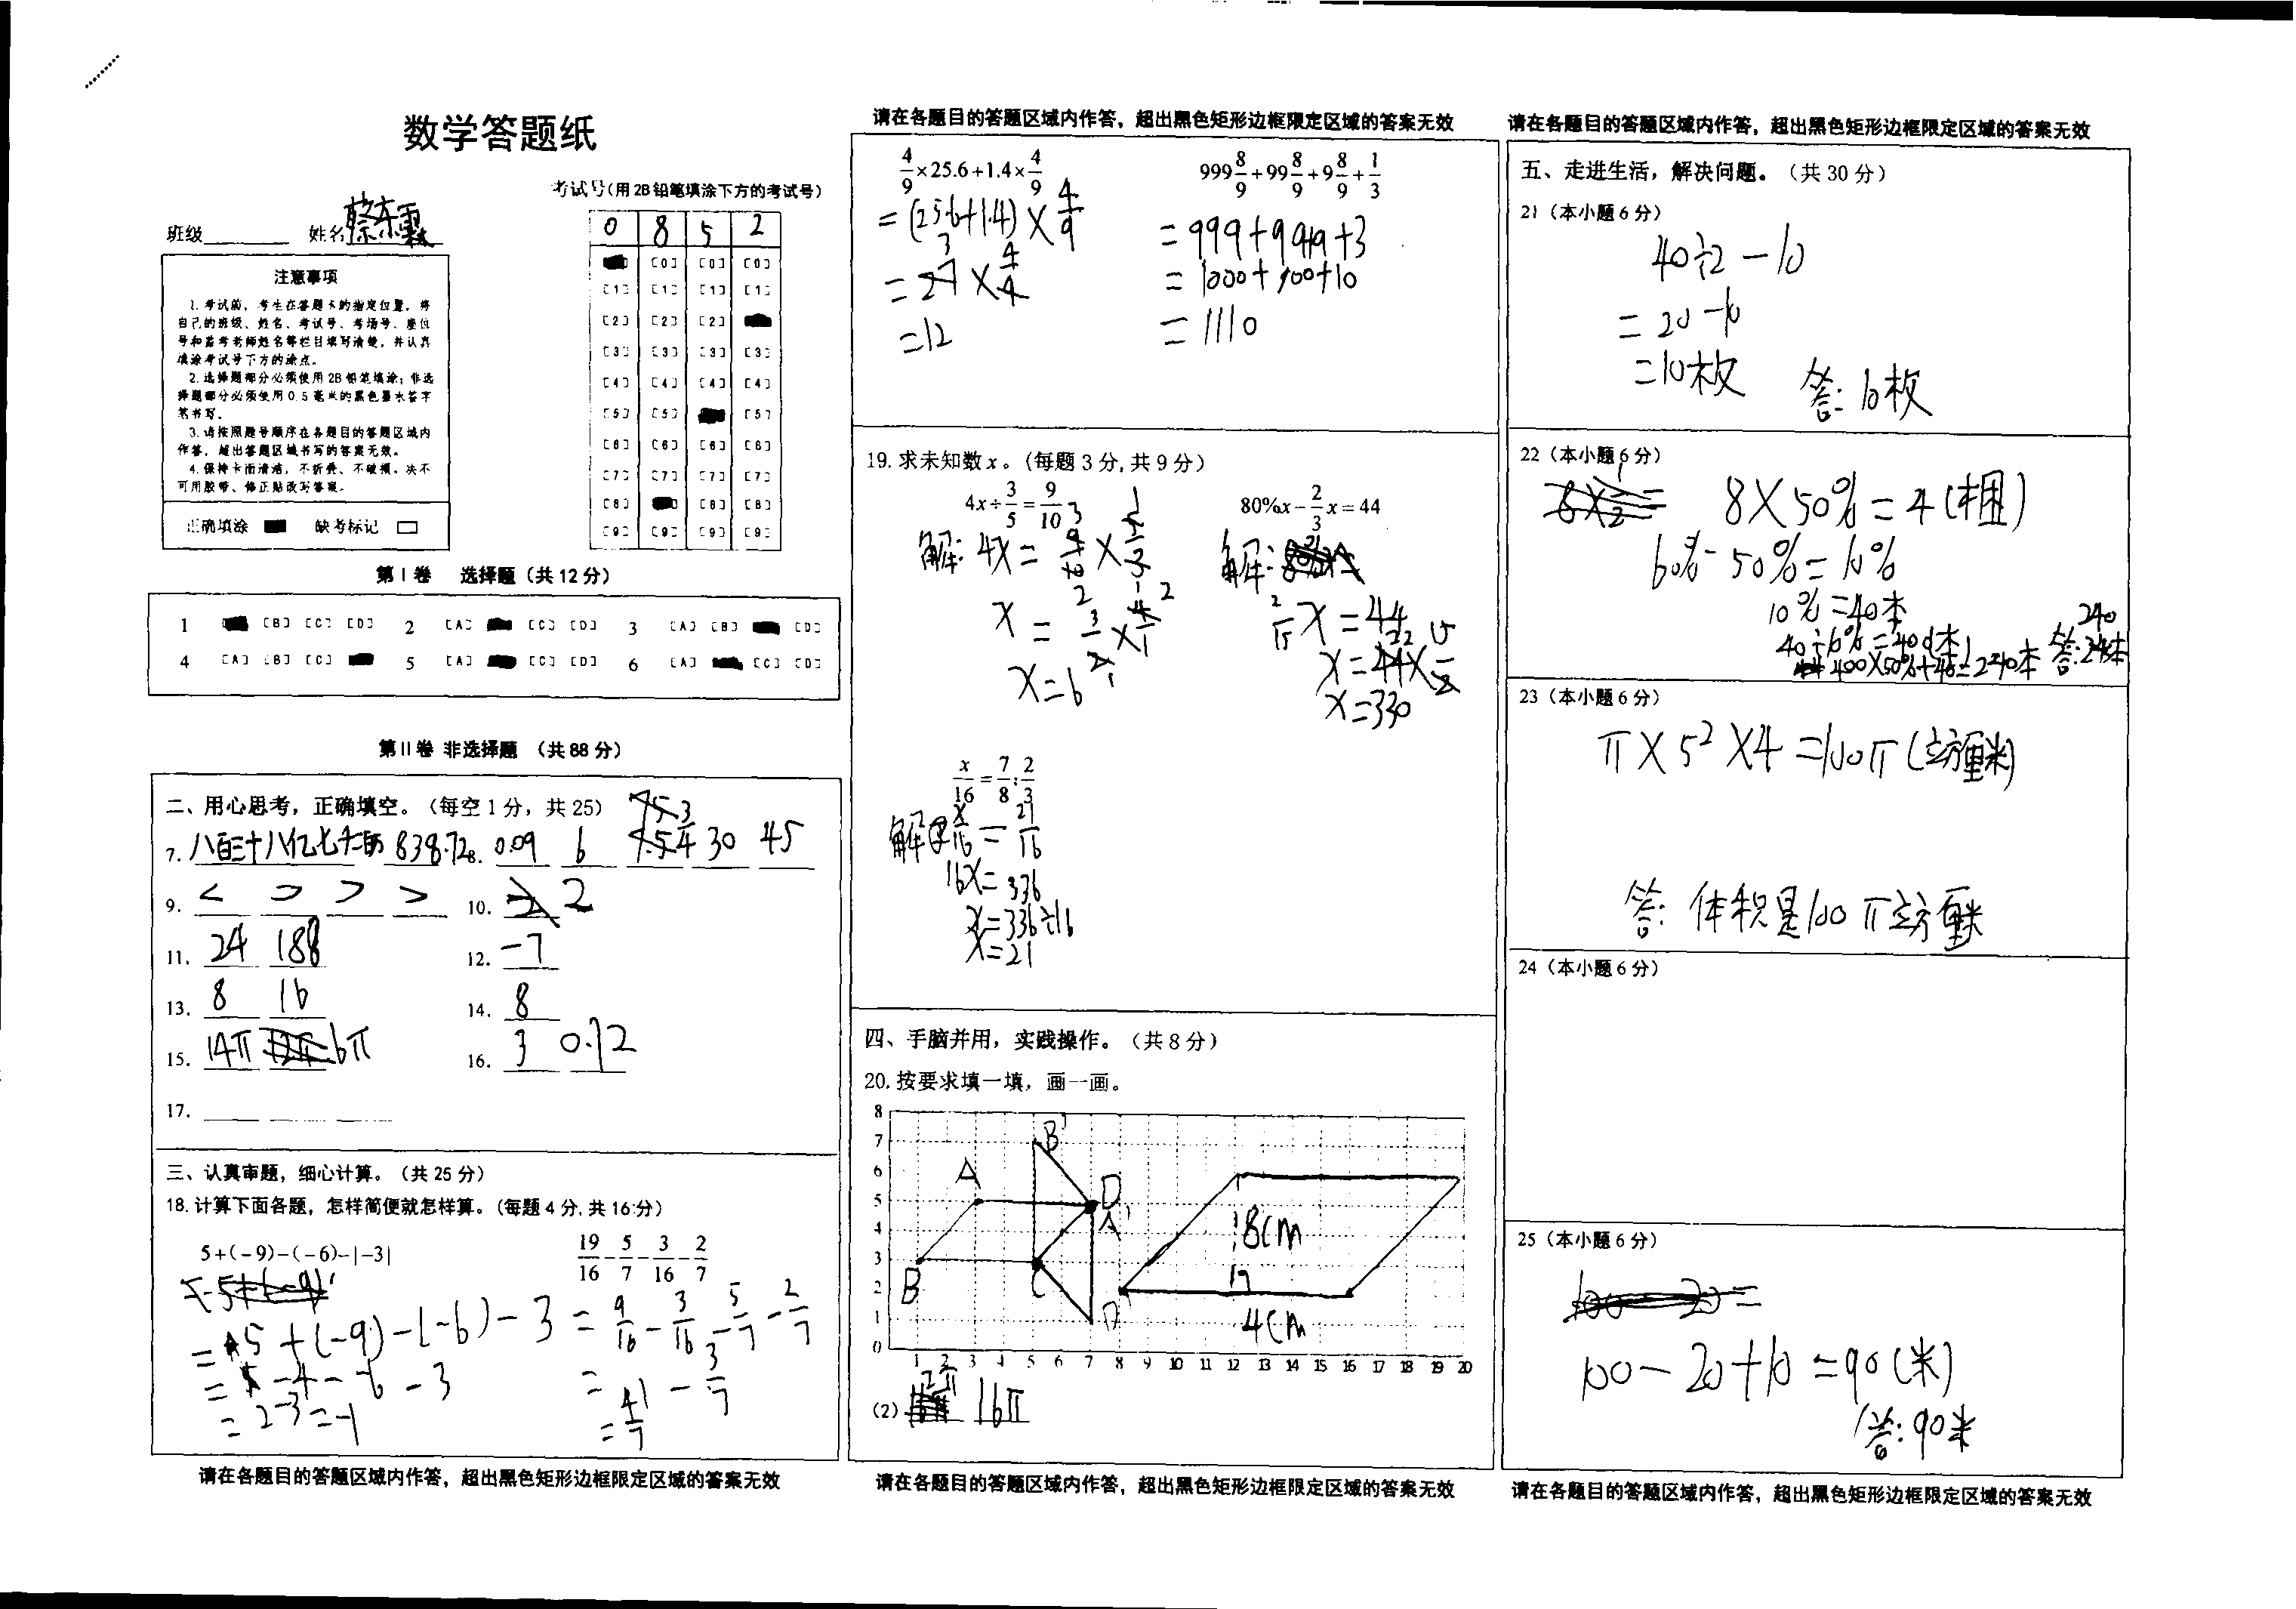 数学答题纸
考试号(用2B铅笔填涂下方的考试号)
班级 姓名 蔡东霖
0 8 5 2
[0] [0] [0]
[1] [1] [1] [1]
[2] [2] [2]
[3] [3] [3] [3]
[4] [4] [4] [4]
[5] [5] [5]
[6] [6] [6] [6]
[7] [7] [7] [7]
[8] [8] [8]
[9] [9] [9] [9]
注意事项
1.考试前,考生在答题卡的指定位置,将
自己的班级、姓名、考试号、考场号、座位
号和监考老师姓名等栏目填写清楚,并认真
填涂考试号下方的涂点。
2.选择题部分必须使用2B铅笔填涂;非选
择题部分必须使用0.5毫米的黑色墨水签字
笔书写。
3.请按照题号顺序在各题目的答题区域内
作答,超出答题区域书写的答案无效。
4.保持卡面清洁,不折叠、不破损。决不
可用胶带、修正贴改写答案。
正确填涂 缺考标记
第Ⅰ卷 选择题(共12分)
1 [B] [C] [D] 2 [A] [C] [D] 3 [A] [B] [D]
4 [A] [B] [C] 5 [A] [C] [D] 6 [A] [C] [D]
第Ⅱ卷 非选择题 (共88分)
二、用心思考,正确填空。(每空1分,共25)
7. 838.72 8. 0.09 6 3/4 30 45
9. < > > > 10. 2
11. 24 188 12. -7
13. 8 16 14. 8
15. 14π 6π 16. 3 0.12
17.
三、认真审题,细心计算。(共25分)
18.计算下面各题,怎样简便就怎样算。(每题4分,共16分)
5+(-9)-(-6)-|-3|
+(-9)-(-6)-3
=2-3=-1
19/16-5/7-3/16-2/7
=9/16-3/16-5/7-2/7
=4/7
请在各题目的答题区域内作答,超出黑色矩形边框限定区域的答案无效
请在各题目的答题区域内作答,超出黑色矩形边框限定区域的答案无效
4/9×25.6+1.4×4/9
=(25.6+1.4)×4/9
=12
999 8/9+99 8/9+9 8/9+1/3
=1000+100+10
=1110
19.求未知数x。(每题3分,共9分)
4x÷3/5=9/10
解:4x=9/10×
x=6
80%x-2/3x=44
解:
2/15x=44
x=44×15/2
x=330
x/16=7/8:2/3
解: x/16=21/16
16x=336
x=336÷16
x=21
四、手脑并用,实践操作。(共8分)
20.按要求填一填,画一画。
8
7 B'
6 A
5 D
4 A'
3
2 B C D'
1
0
8cm
4cm
1 2 3 4 5 6 7 8 9 10 11 12 13 14 15 16 17 18 19 20
(2) 12π 16π
请在各题目的答题区域内作答,超出黑色矩形边框限定区域的答案无效
请在各题目的答题区域内作答,超出黑色矩形边框限定区域的答案无效
五、走进生活,解决问题。(共30分)
21(本小题6分)
40÷2-10
=20-10
=10枚
答:10枚
22(本小题6分)
8×50%=4(捆)
60%-50%=10%
10%=40本
40÷10%=400本
400×50%+40=240本
答:240本
23(本小题6分)
π×5²×4=100π(立方厘米)
答:体积是100π立方厘米
24(本小题6分)
25(本小题6分)
100-20+10=90(米)
答:90米
请在各题目的答题区域内作答,超出黑色矩形边框限定区域的答案无效